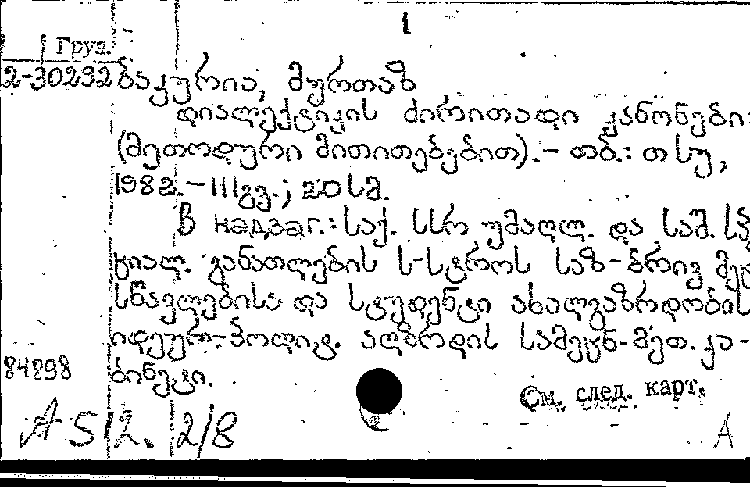 1
Груз.
2-30232 ბაკურია, მურთაზ
დიალექტიკის ძირითადი კანონები
(მეთოდური მითითებებით). — თბ.: თსუ,
1982. — 111გვ.; 20სმ.
В надзаг.: საქ. სსრ უმაღლ. და საშ. სპე
ციალ. განათლების ს-სტროს საზ-ბრივ მეც
სწავლებისა და სტუდენტი ახალგაზრდობის
იდეურ-პოლიტ. აღზრდის სამეცნ-მეთ. კა-
84898 ბინეტი.
См. след. карт.
A 512. 2/8 A